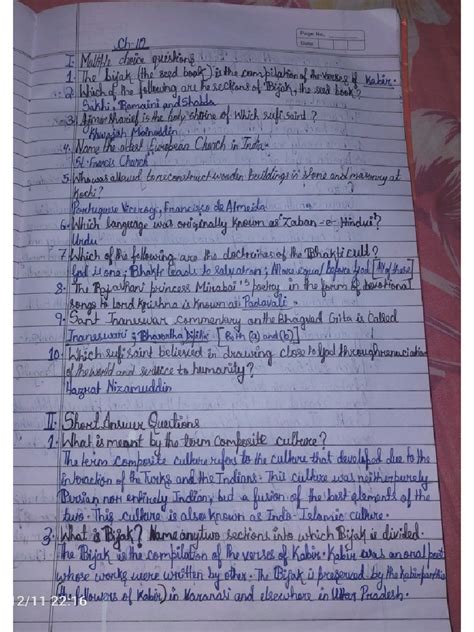 Page No.
Date
Ch-10
I. Multiple choice questions
1. The bijak (the seed book) is the compilation of the verses of Kabir.
2. Which of the following are the sections of Bijak, the seed book?
Sakhi, Ramaini and Shabda
3. Ajmer Sharief is the holy shrine of which sufi saint?
Khwajah Moinuddin
4. Name the oldest European Church in India.
St. Francis Church
5. Who was allowed to reconstruct wooden buildings in stone and masonry at
Kochi?
Portuguese Viceroy, Francisco de Almeida
6. Which language was originally known as "Zaban-e-Hindui"?
Urdu
7. Which of the following are the doctrines of the Bhakti cult?
God is one; Bhakti leads to salvation; All are equal before god [All of these]
8. The Rajasthani princess Mirabai's poetry in the form of devotional
songs to lord Krishna is known as Padavali.
9. Sant Jnaneswar commentary on the Bhagvad Gita is called
Jnaneswari; Bhavartha Dipika [Both (a) and (b)]
10. Which sufi saint believed in drawing close to God through renunciation
of the world and services to humanity?
Hazrat Nizamuddin
II. Short Answer Questions
1. What is meant by the term composite culture?
The term composite culture refers to the culture that developed due to the
interaction of the Turks and the Indians. This culture was neither purely
Persian nor entirely Indian, but a fusion of the best elements of the
two. This culture is also known as Indo-Islamic culture.
3. What is Bijak? Name any two sections into which Bijak is divided.
The Bijak is the compilation of the verses of Kabir. Kabir was an oral poet
whose works were written by other. The Bijak is preserved by the Kabirpanthis
(the followers of Kabir) in Varanasi and elsewhere in Uttar Pradesh.
12/11 22:16